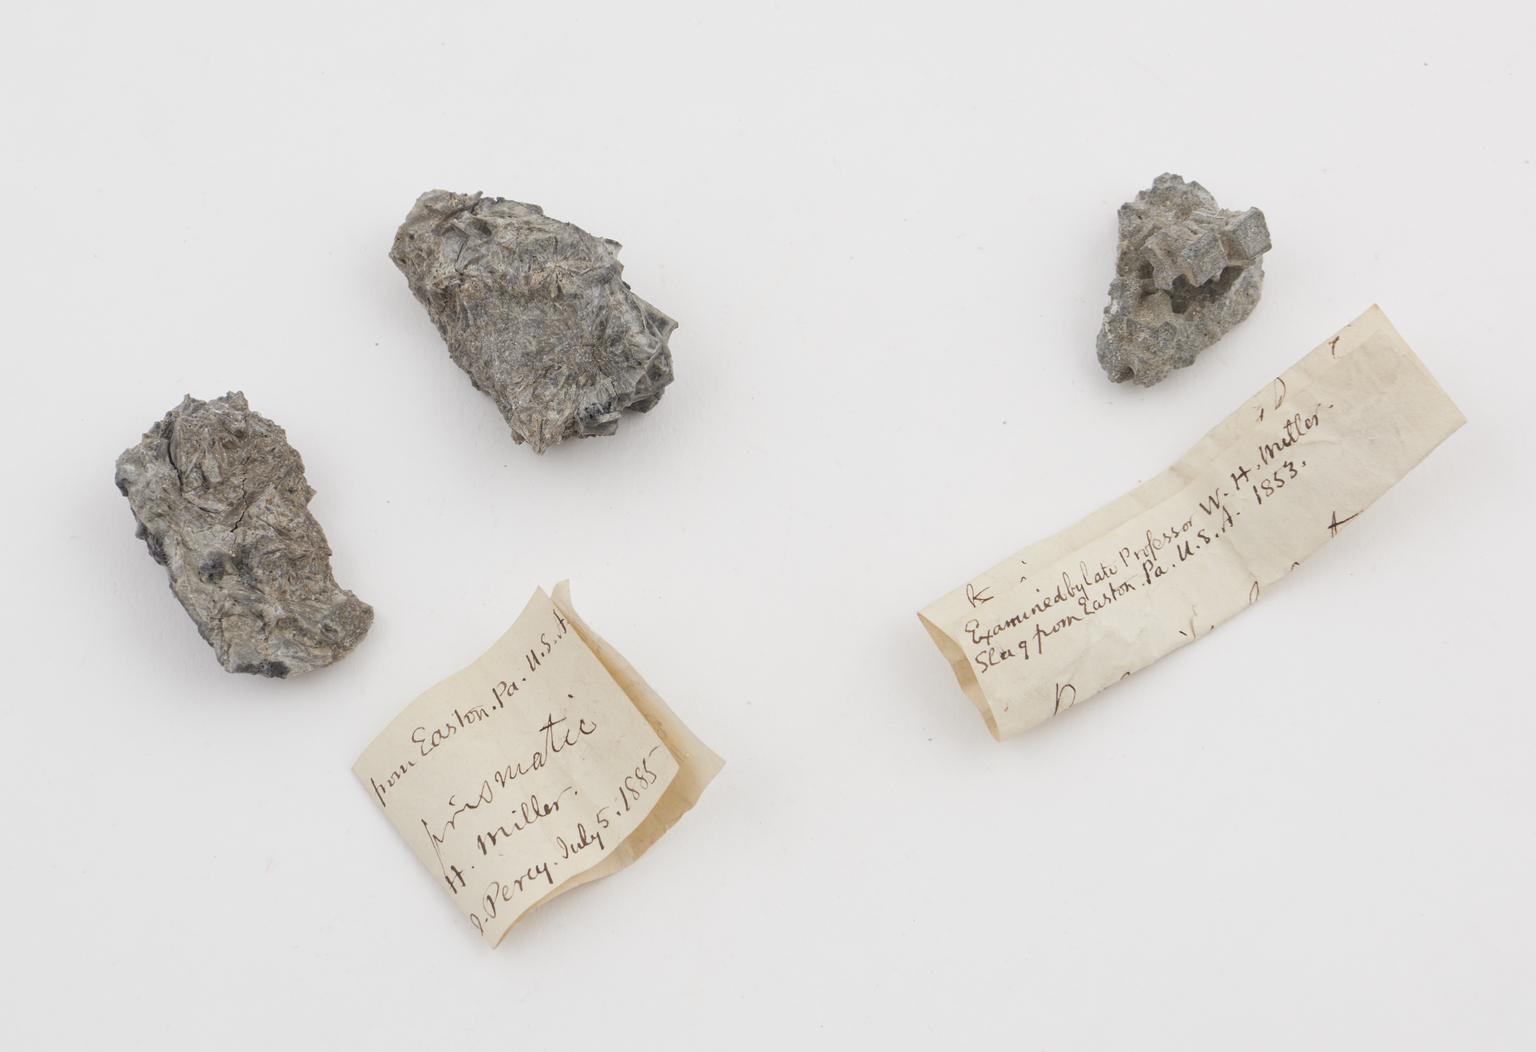 from Easton. Pa. U.S.A
prismatic
H. Miller.
J. Percy. July 5: 1885
Examined by late Professor W. H. Miller.
Slag from Easton. Pa. U.S.A. 1853.